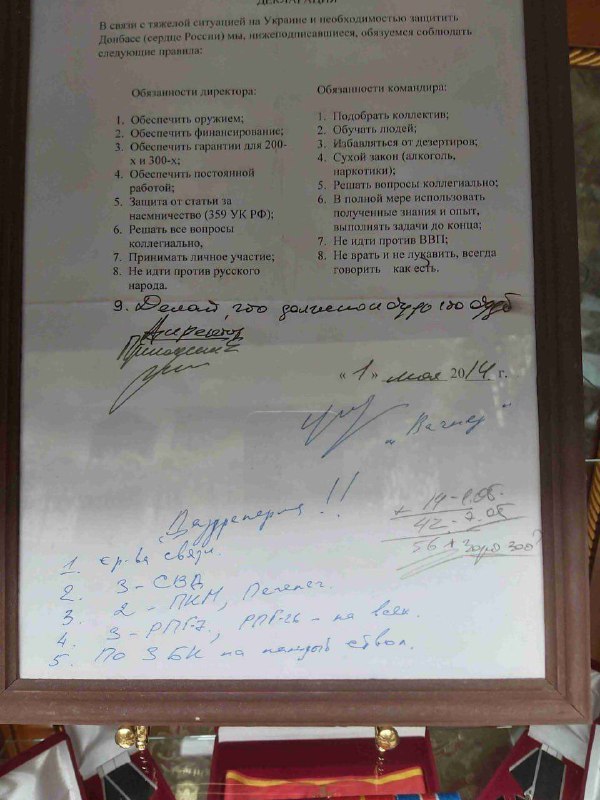 ДЕКЛАРАЦИЯ
В связи с тяжелой ситуацией на Украине и необходимостью защитить
Донбасс (сердце России) мы, нижеподписавшиеся, обязуемся соблюдать
следующие правила:
Обязанности директора:
1. Обеспечить оружием;
2. Обеспечить финансирование;
3. Обеспечить гарантии для 200-
х и 300-х;
4. Обеспечить постоянной
работой;
5. Защита от статьи за
насмничество (359 УК РФ);
6. Решать все вопросы
коллегиально,
7. Принимать личное участие;
8. Не идти против русского
народа.
Обязанности командира:
1. Подобрать коллектив;
2. Обучать людей;
3. Избавляться от дезертиров;
4. Сухой закон (алкоголь,
наркотики);
5. Решать вопросы коллегиально;
6. В полной мере использовать
полученные знания и опыт,
выполнять задачи до конца;
7. Не идти против ВВП;
8. Не врать и не лукавить, всегда
говорить как есть.
9. Делай, что должно и будь что будет
Директор
Пригожин Е
« 1 » мая 2014 г.
„Вагнер"
!!
+ 14 -
42 -
56
1 ср-ва связи.
2. 3 - СВД
3. 2 - ПКМ, Печенег.
4. 3 - РПГ-7, РПГ-26 - на всех.
5. По 3 БК на каждый ствол.